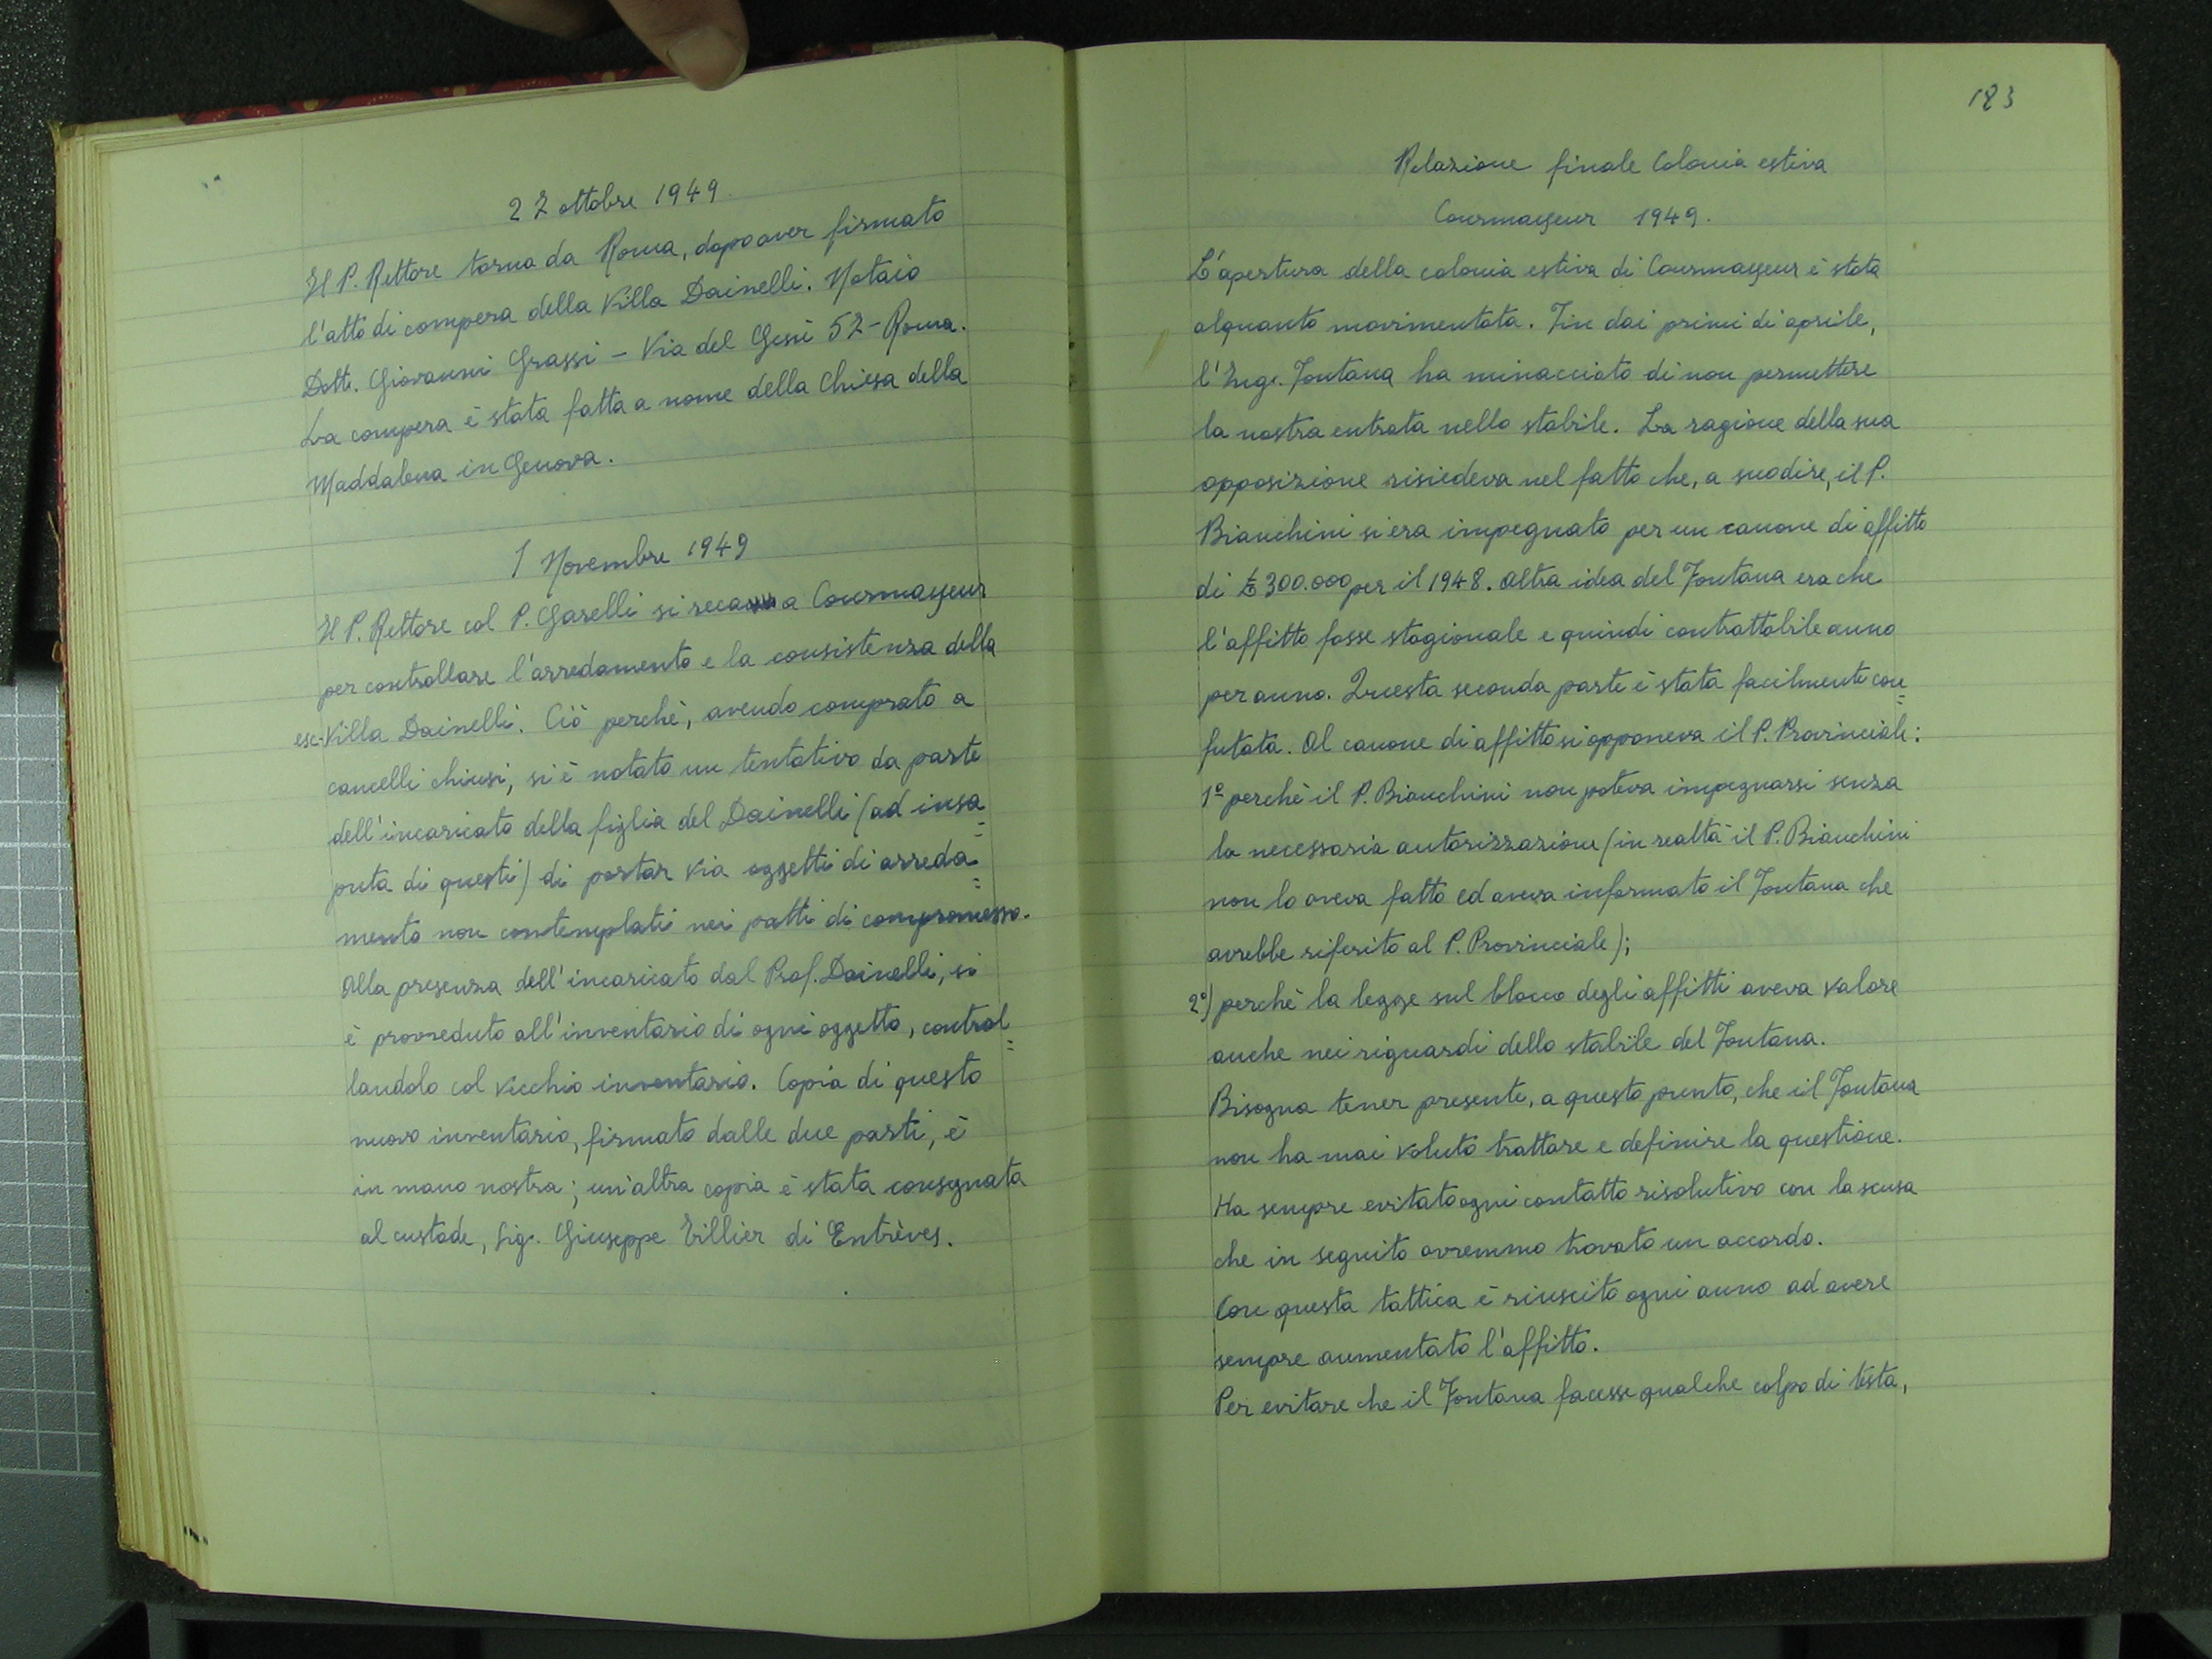 27 ottobre 1949.
Il P. Rettore torna da Roma, dopo aver firmato
l'atto di compera della Villa Dainelli. Notaio
Dott. Giovanni Grassi - Via del Gesù 57 - Roma.
La compera è stata fatta a nome della Chiesa della
Maddalena in Genova.
1 Novembre 1949
Il P. Rettore col P. Gaselli si reca a Courmayeur
per controllare l'arredamento e la consistenza della
esc-Villa Dainelli. Ciò perchè, avendo comprato a
cancelli chiusi, si è notato un tentativo da parte
dell'incaricato della figlia del Dainelli (ad insa=
puta di questi) di portar via oggetti di arreda=
mento non contemplati nei patti di compromesso.
Alla presenza dell'incaricato dal Prof. Dainelli, si
è provveduto all'inventario di ogni oggetto, control=
landolo col vecchio inventario. Copia di questo
nuovo inventario, firmato dalle due parti, è
in mano nostra; un'altra copia è stata consegnata
al custode, Sig. Giuseppe Tillier di Entrèves.
183
Relazione finale Colonia estiva
Courmayeur 1949.
L'apertura della colonia estiva di Courmayeur è stata
alquanto movimentata. Fin dai primi di aprile,
l'Ing. Fontana ha minacciato di non permettere
la nostra entrata nello stabile. La ragione della sua
opposizione risiedeva nel fatto che, a suo dire, il P.
Bianchini si era impegnato per un canone di affitto
di £ 300.000 per il 1948. Altra idea del Fontana era che
l'affitto fosse stagionale e quindi contrattabile anno
per anno. Questa seconda parte è stata facilmente con=
futata. Al canone di affitto si opponeva il P. Provinciale:
1º perchè il P. Bianchini non poteva impegnarsi senza
la necessaria autorizzazione (in realtà il P. Bianchini
non lo aveva fatto ed aveva informato il Fontana che
avrebbe riferito al P. Provinciale);
2º) perchè la legge sul blocco degli affitti aveva valore
anche nei riguardi dello stabile del Fontana.
Bisogna tener presente, a questo punto, che il Fontana
non ha mai voluto trattare e definire la questione.
Ha sempre evitato ogni contatto risolutivo con la scusa
che in seguito avremmo trovato un accordo.
Con questa tattica è riuscito ogni anno ad avere
sempre aumentato l'affitto.
Per evitare che il Fontana facesse qualche colpo di testa,